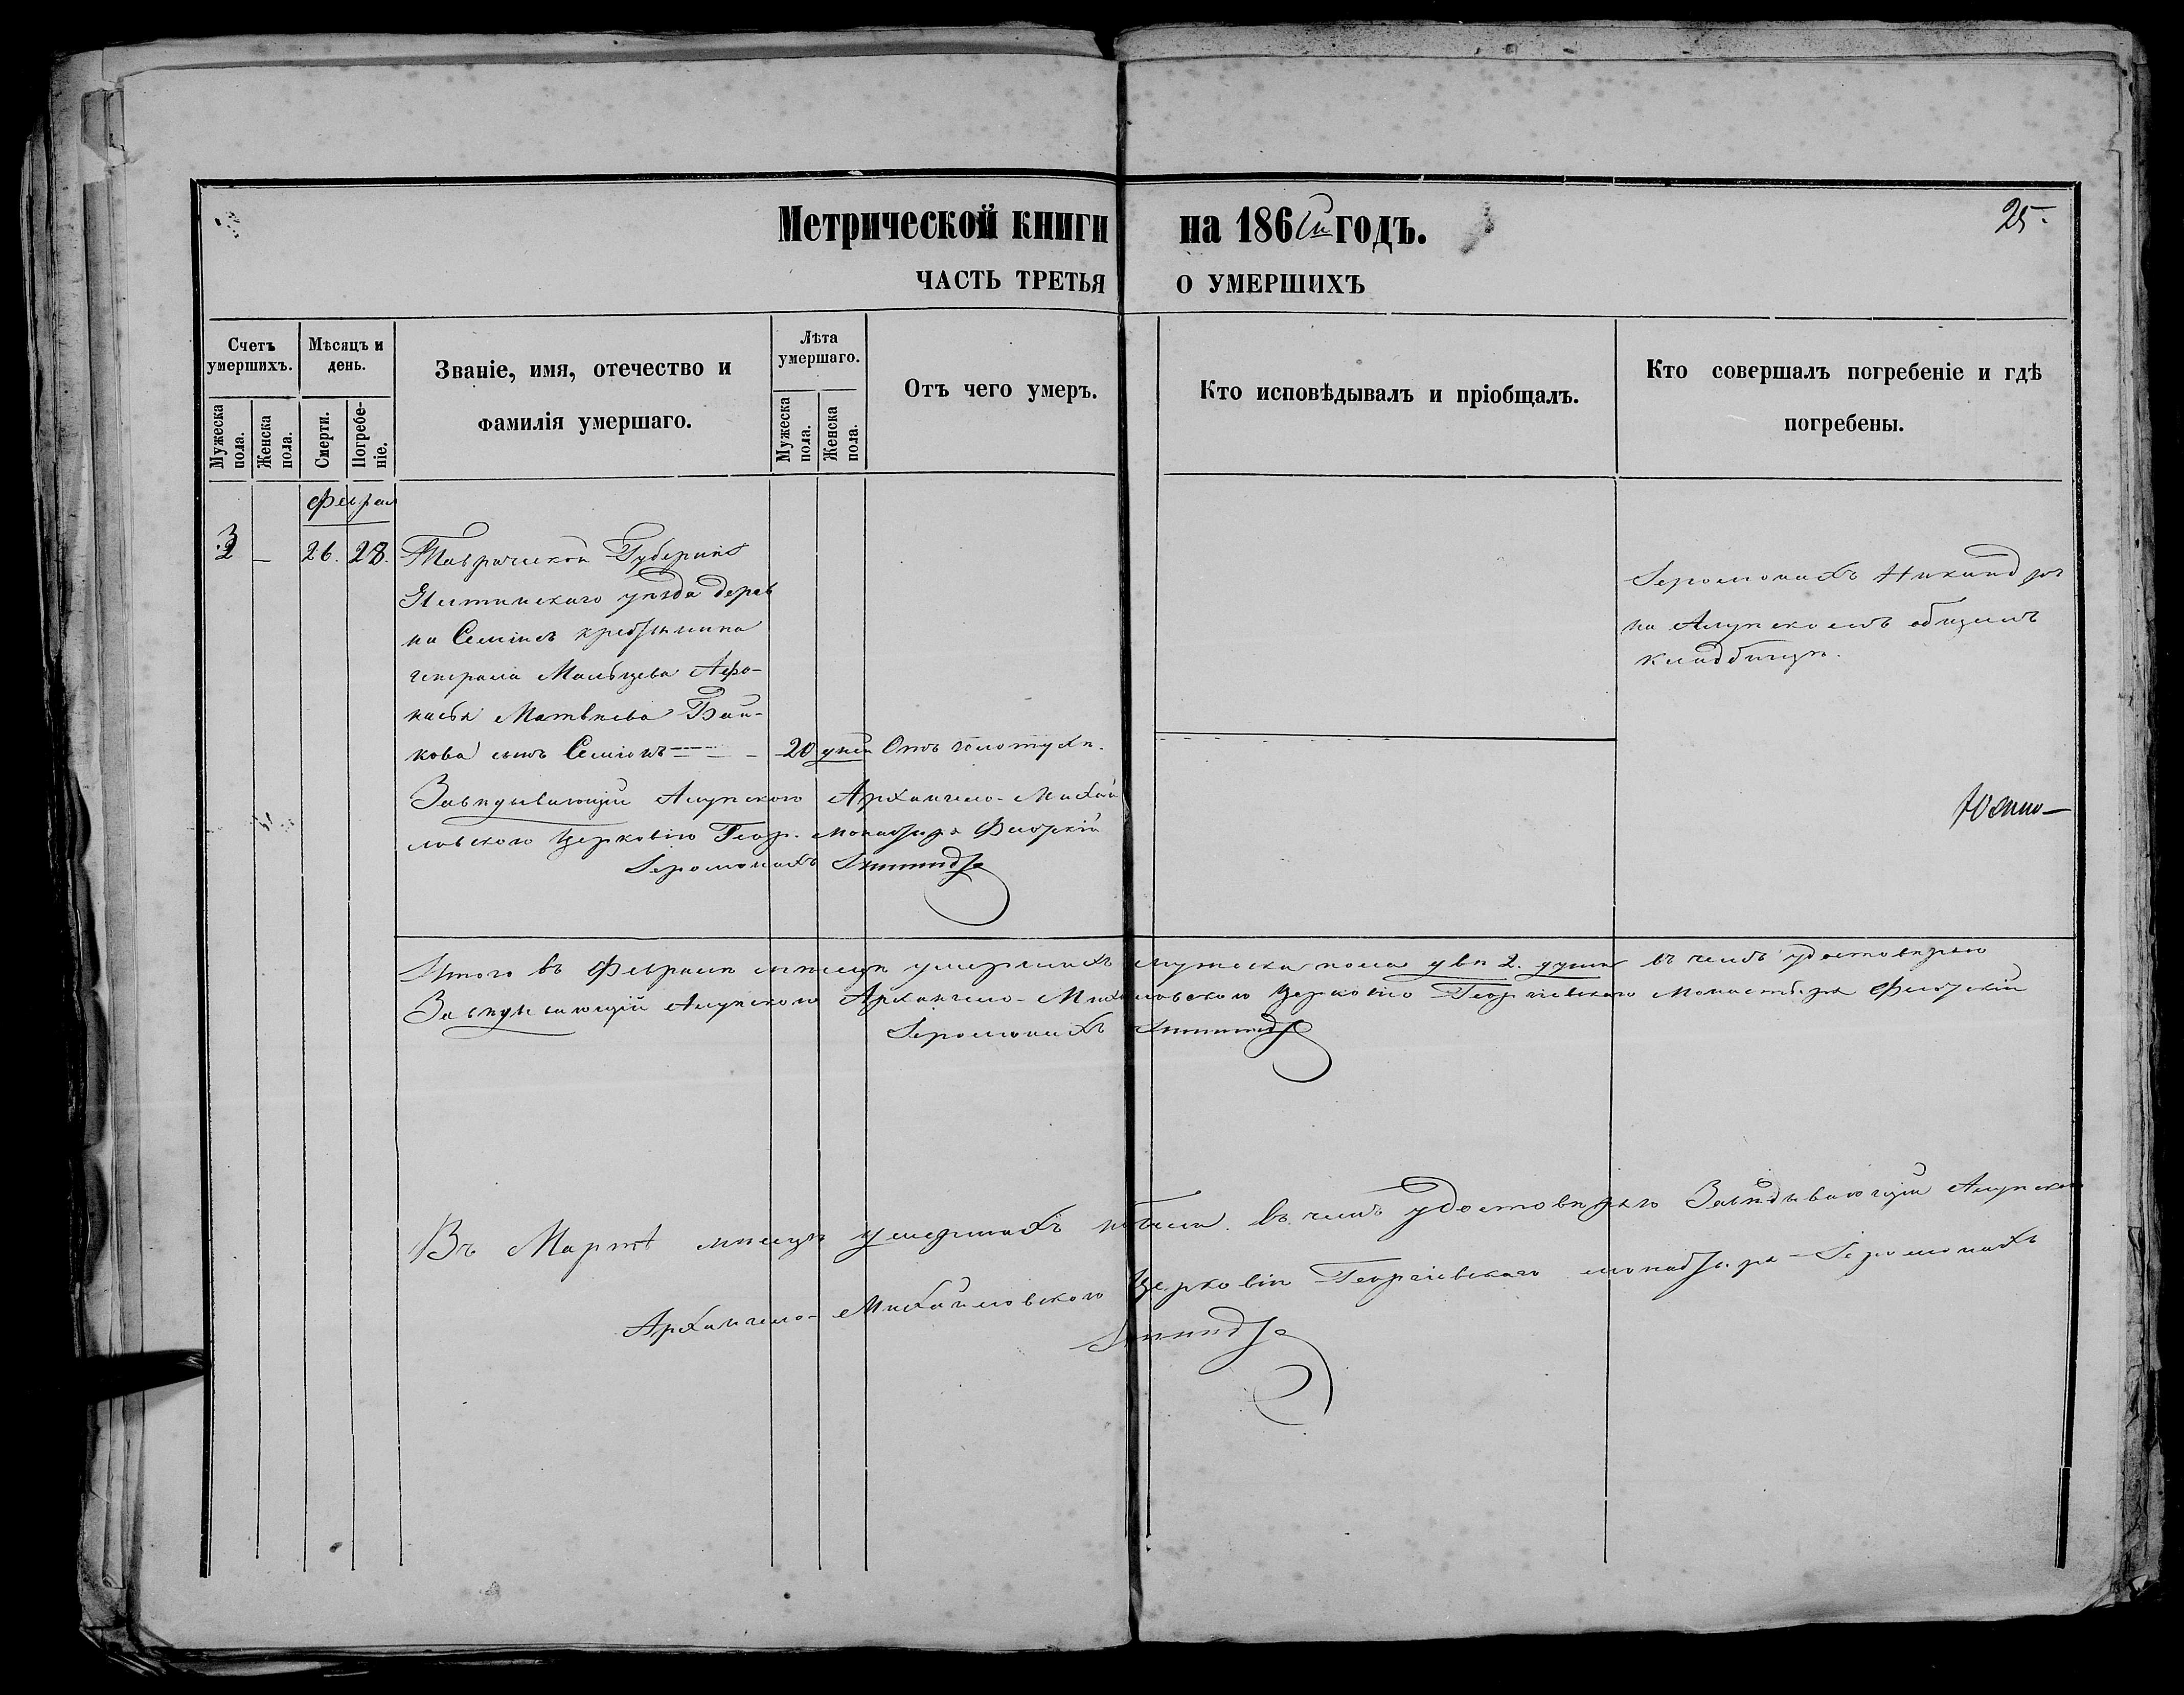 Метрической книги на 186 годъ.
25
ЧАСТЬ ТРЕТЬЯ О УМЕРШИХЪ
Счетъ умершихъ.
Мужеска пола.
Женска пола.
Мѣсяцъ и день.
Смерти.
Погребеніе.
Званіе, имя, отечество и
фамилія умершаго.
Лѣта умершаго.
Мужеска пола.
Женска пола.
Отъ чего умеръ.
Кто исповѣдывалъ и пріобщалъ.
Кто совершалъ погребеніе и гдѣ
погребены.
Феврал
26. 28. Таврической Губерніи
Ялтинскаго уѣзда дерев
ни Семіисъ крестьянина
генерала Мальцева Афо-
насья Матвѣева Бай-
кова сынъ Семіонъ 20 дней Отъ золотухи.
Іеромонахъ Никандръ
на Алупскомъ общемъ
кладбищѣ.
Завѣдывающій Алупского Архангело-Михай
ловского Церковію Геор. Монастыря
Іеромонахъ
Итого въ Февралѣ мѣсяцѣ умершихъ мужеска пола двѣ 2. души въ чемъ удостовѣряю
Завѣдывающій Алупского Архангело-Михайловского Церковію Георгіевскаго Монастыря
Іеромонахъ
Въ Мартѣ мѣсяцѣ умершихъ небыли. въ чемъ удостовѣряю Завѣдывающій Алупского
Архангело-Михайловского Церковію Георгіевскаго монастыря Іеромонахъ